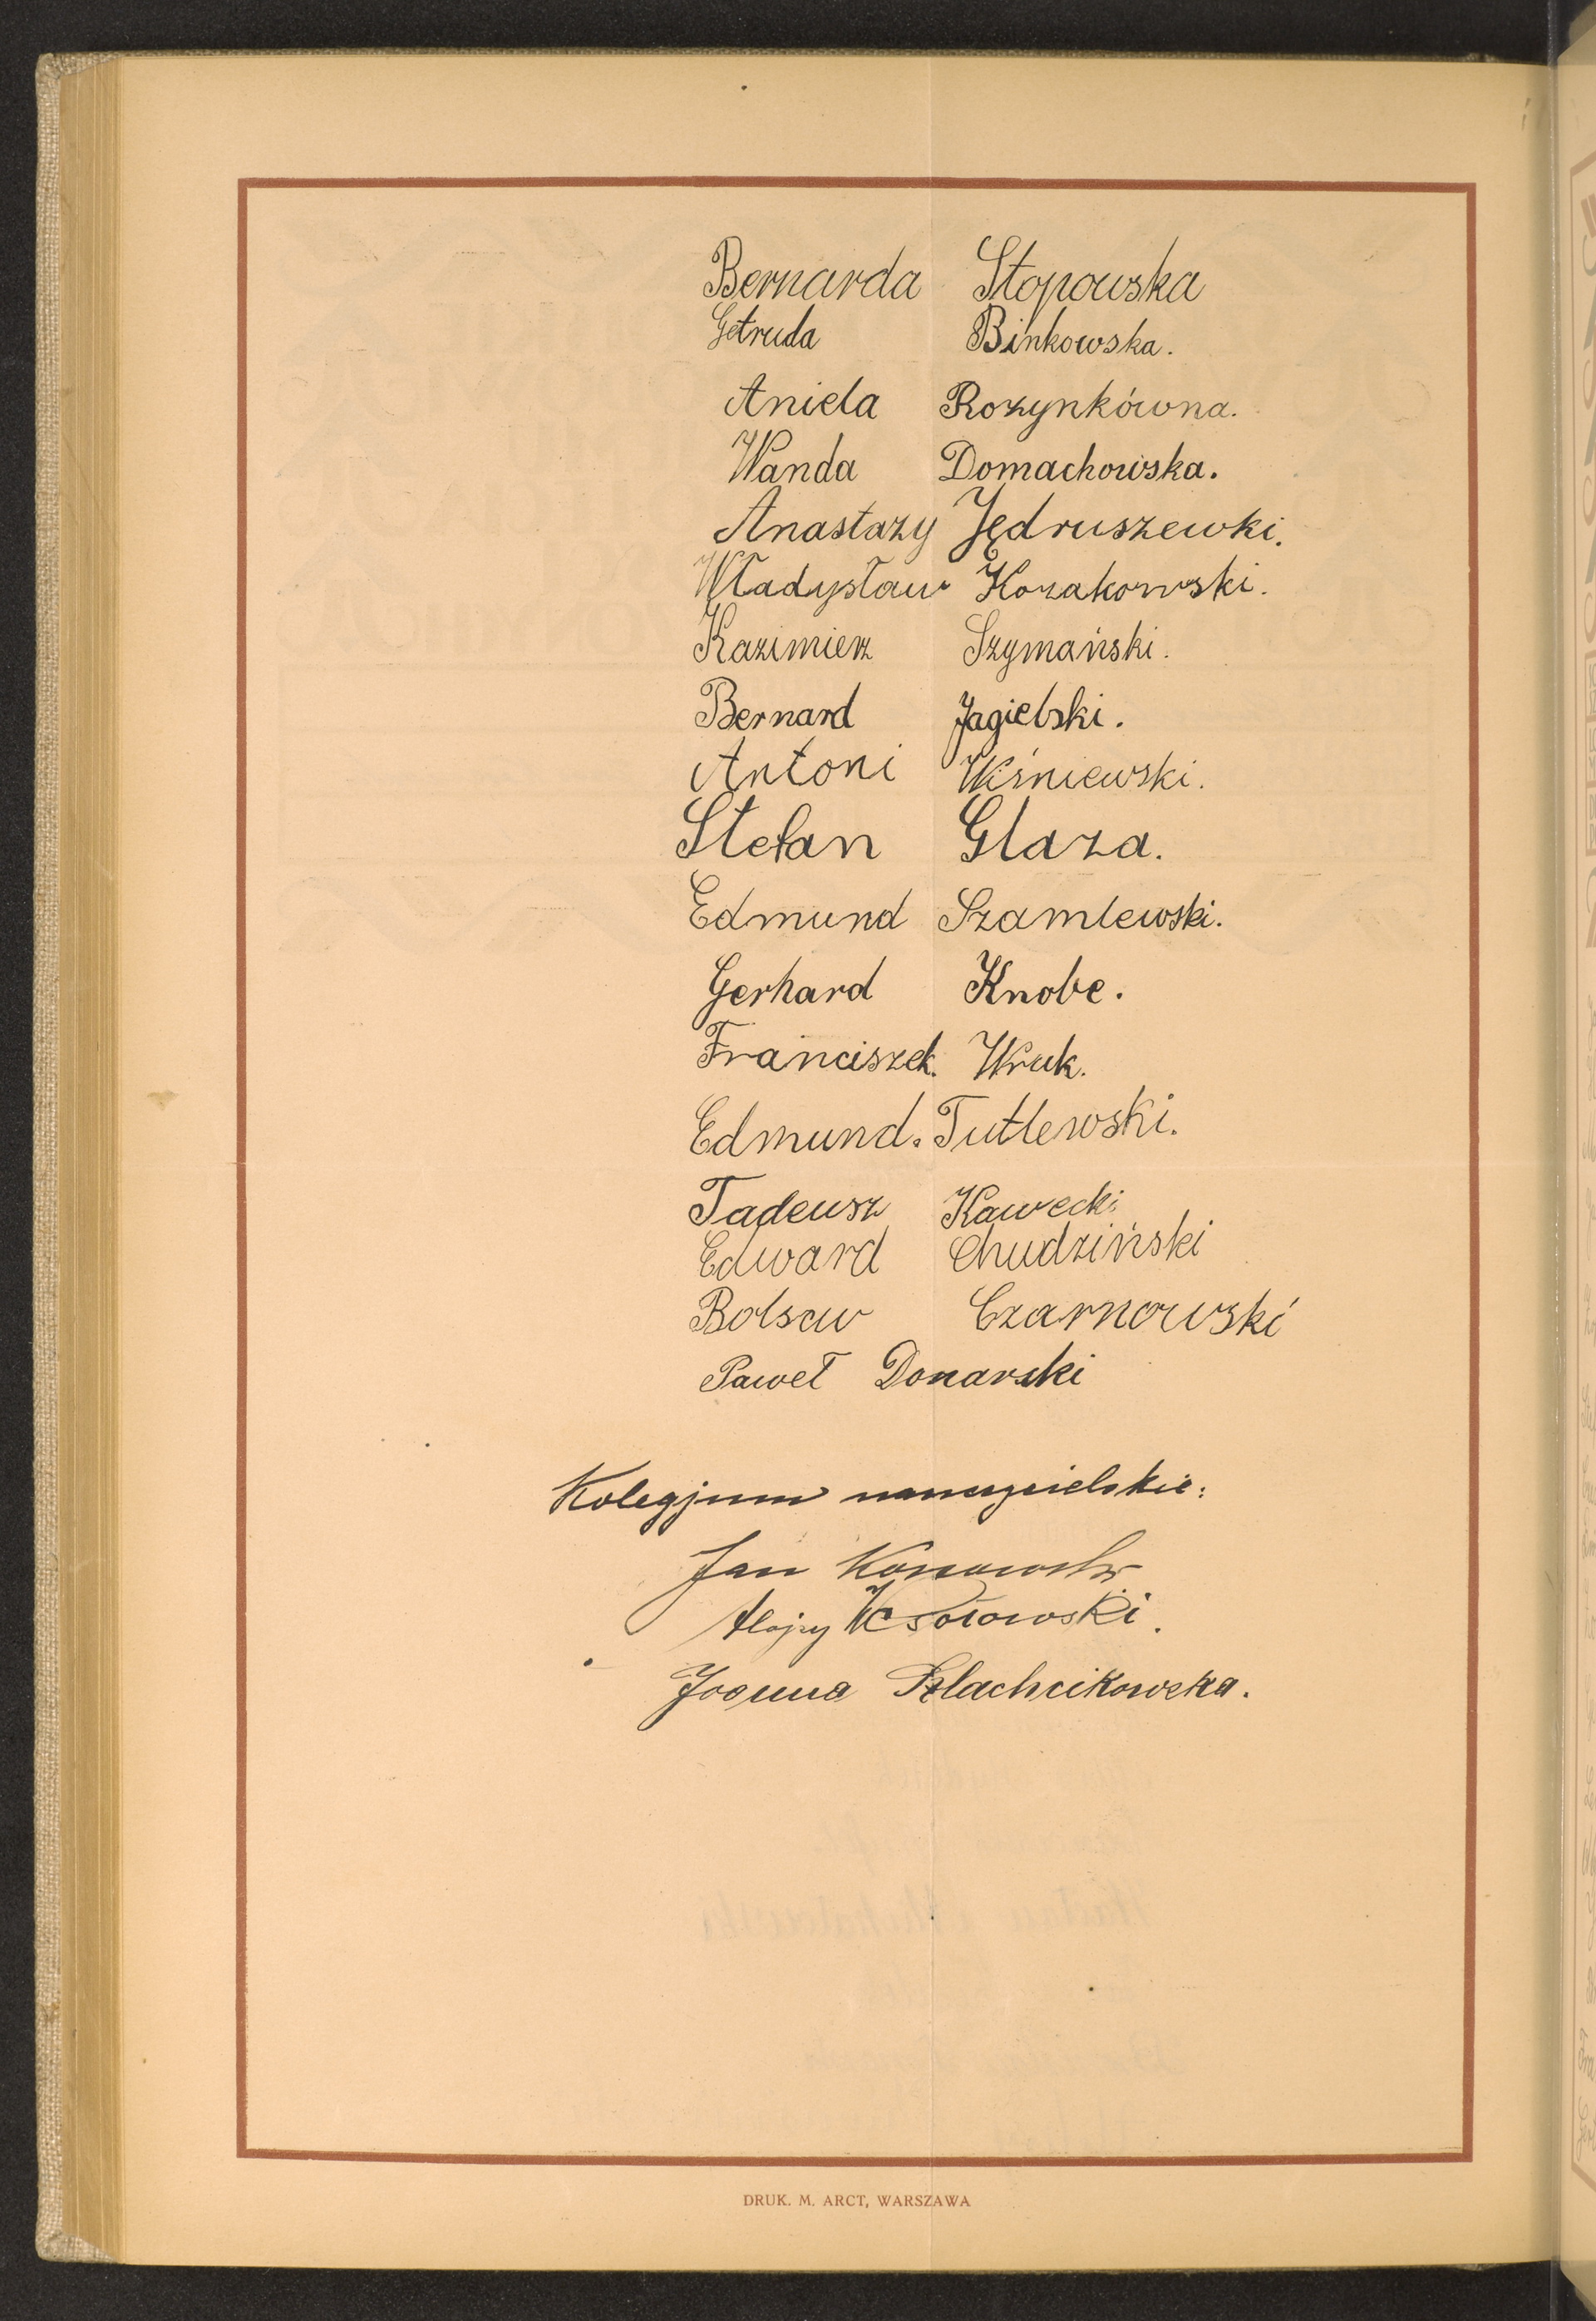 Bernarda Stopowska
Getruda Binkowska.
Aniela Rozynkówna.
Wanda Domachowska.
Anastazy Jędruszewki.
Władysław Kozakowski.
Kazimierz Szymański.
Bernard Jagielski.
Antoni Wiśniewski.
Stefan Glaza.
Edmund Szamlewski.
Gerhard Knobe.
Franciszek. Wruk.
Edmund. Tutlewski.
Tadeusz Kawecki
Edward Chudziński
Bolsaw Czarnowski
Paweł Donarski
Kolegjum nauczycielskie:
Jan
Alojzy
Joanna Szlachcikowska.
DRUK. M. ARCT, WARSZAWA